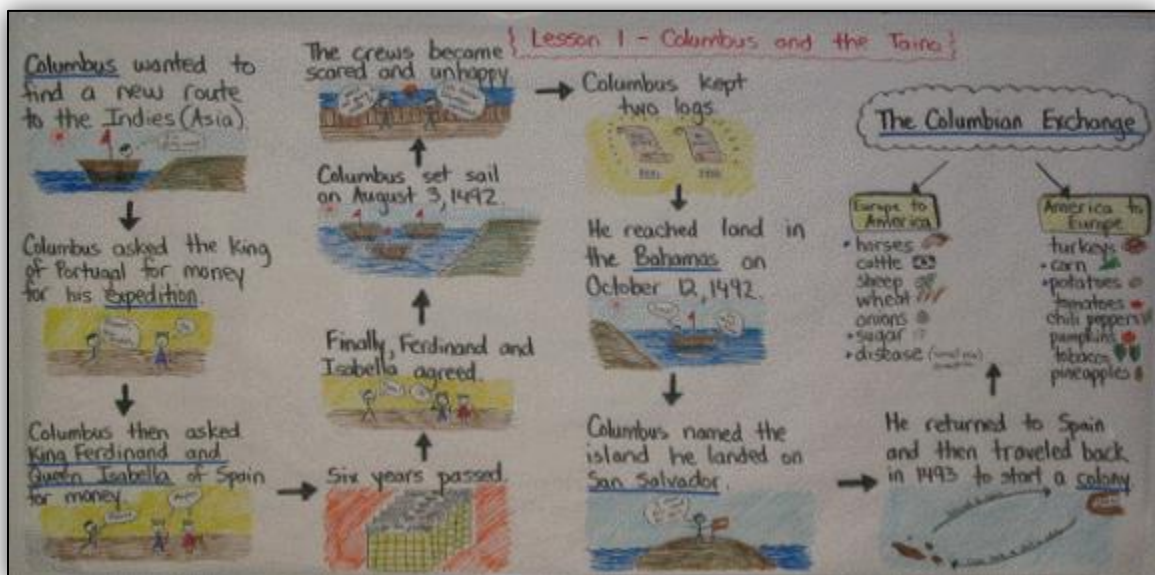 { Lesson 1 - Columbus and the Taino }
Columbus wanted to
find a new route
to the Indies (Asia).
Columbus asked the King
of Portugal for money
for his expedition.
Columbus then asked
King Ferdinand and
Queen Isabella of Spain
for money.
Six years passed.
Finally, Ferdinand and
Isabella agreed.
Columbus set sail
on August 3, 1492.
The crews became
scared and unhappy.
Columbus kept
two logs.
He reached land in
the Bahamas on
October 12, 1492.
Columbus named the
island he landed on
San Salvador.
He returned to Spain
and then traveled back
in 1493 to start a colony.
The Columbian Exchange
Europe to
America
• horses
cattle
sheep
wheat
onions
• sugar
• disease
America to
Europe
turkeys
• corn
• potatoes
tomatoes
chili peppers
pumpkins
tobacco
pineapples